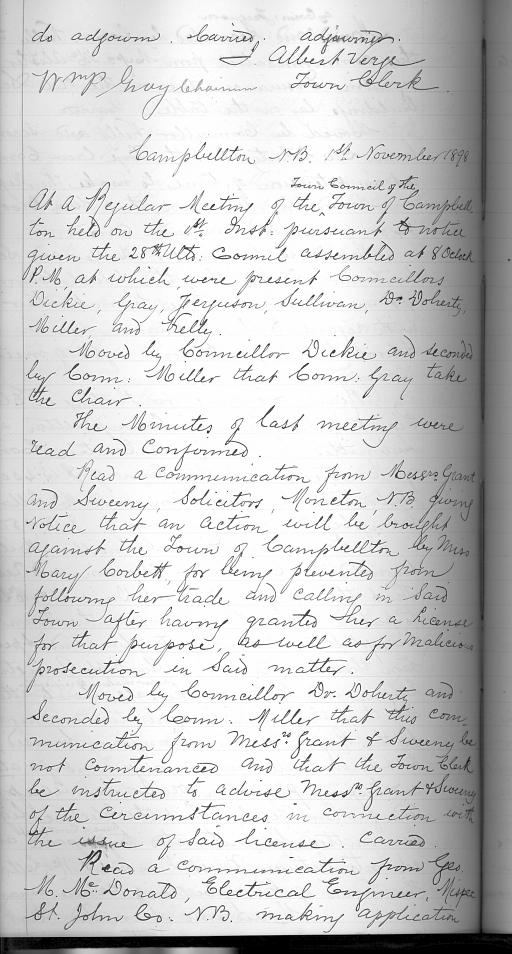 do adjourn. Carried. adjourned.
J. Albert Verge
Wm P Gray Chairman Town Clerk.
Campbellton N.B. 1st November 1898
Town Council of the
At a Regular Meeting of the Town of Campbell
ton held on the 1st Inst: pursuant to notice
given the 28th Ulto: Council assembled at 8 Oclock
P.M. at which were present Councillors
Dickie, Gray, Ferguson, Sullivan, Dr. Doherty,
Miller and Kelly.
Moved by Councillor Dickie and seconded
by Coun: Miller that Coun: Gray take
the Chair.
The Minutes of last meeting were
read and Confirmed.
Read a communication from Messrs Grant
and Sweeny, Solicitors, Moncton, N.B. giving
Notice that an action will be brought
against the Town of Campbellton by Miss
Mary Corbett, for being prevented from
following her trade and calling in said
Town after having granted her a License
for that purpose, as well as for Malicious
prosecution in said matter.
Moved by Councillor Dr. Doherty and
Seconded by Coun. Miller that this com-
munication from Messrs Grant & Sweeny be
not countenanced and that the Town Clerk
be instructed to advise Messrs Grant & Sweeny
of the Circumstances in connection with
the issue of said license. Carried.
Read a communication from Geo.
M. McDonald, Electrical Engineer, Mispec
St. John Co: N.B. making application